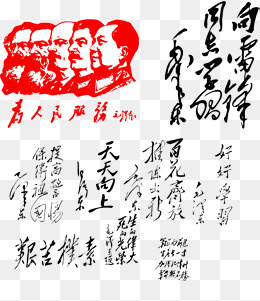 为人民服务
毛泽东
向雷锋
同志学习
毛泽东
提高警惕
保卫祖国
毛泽东
天天向上
毛泽东
百花齐放
推陈出新
毛泽东
好好学习
毛泽东
生的伟大
死的光荣
毛泽东
艰苦朴素